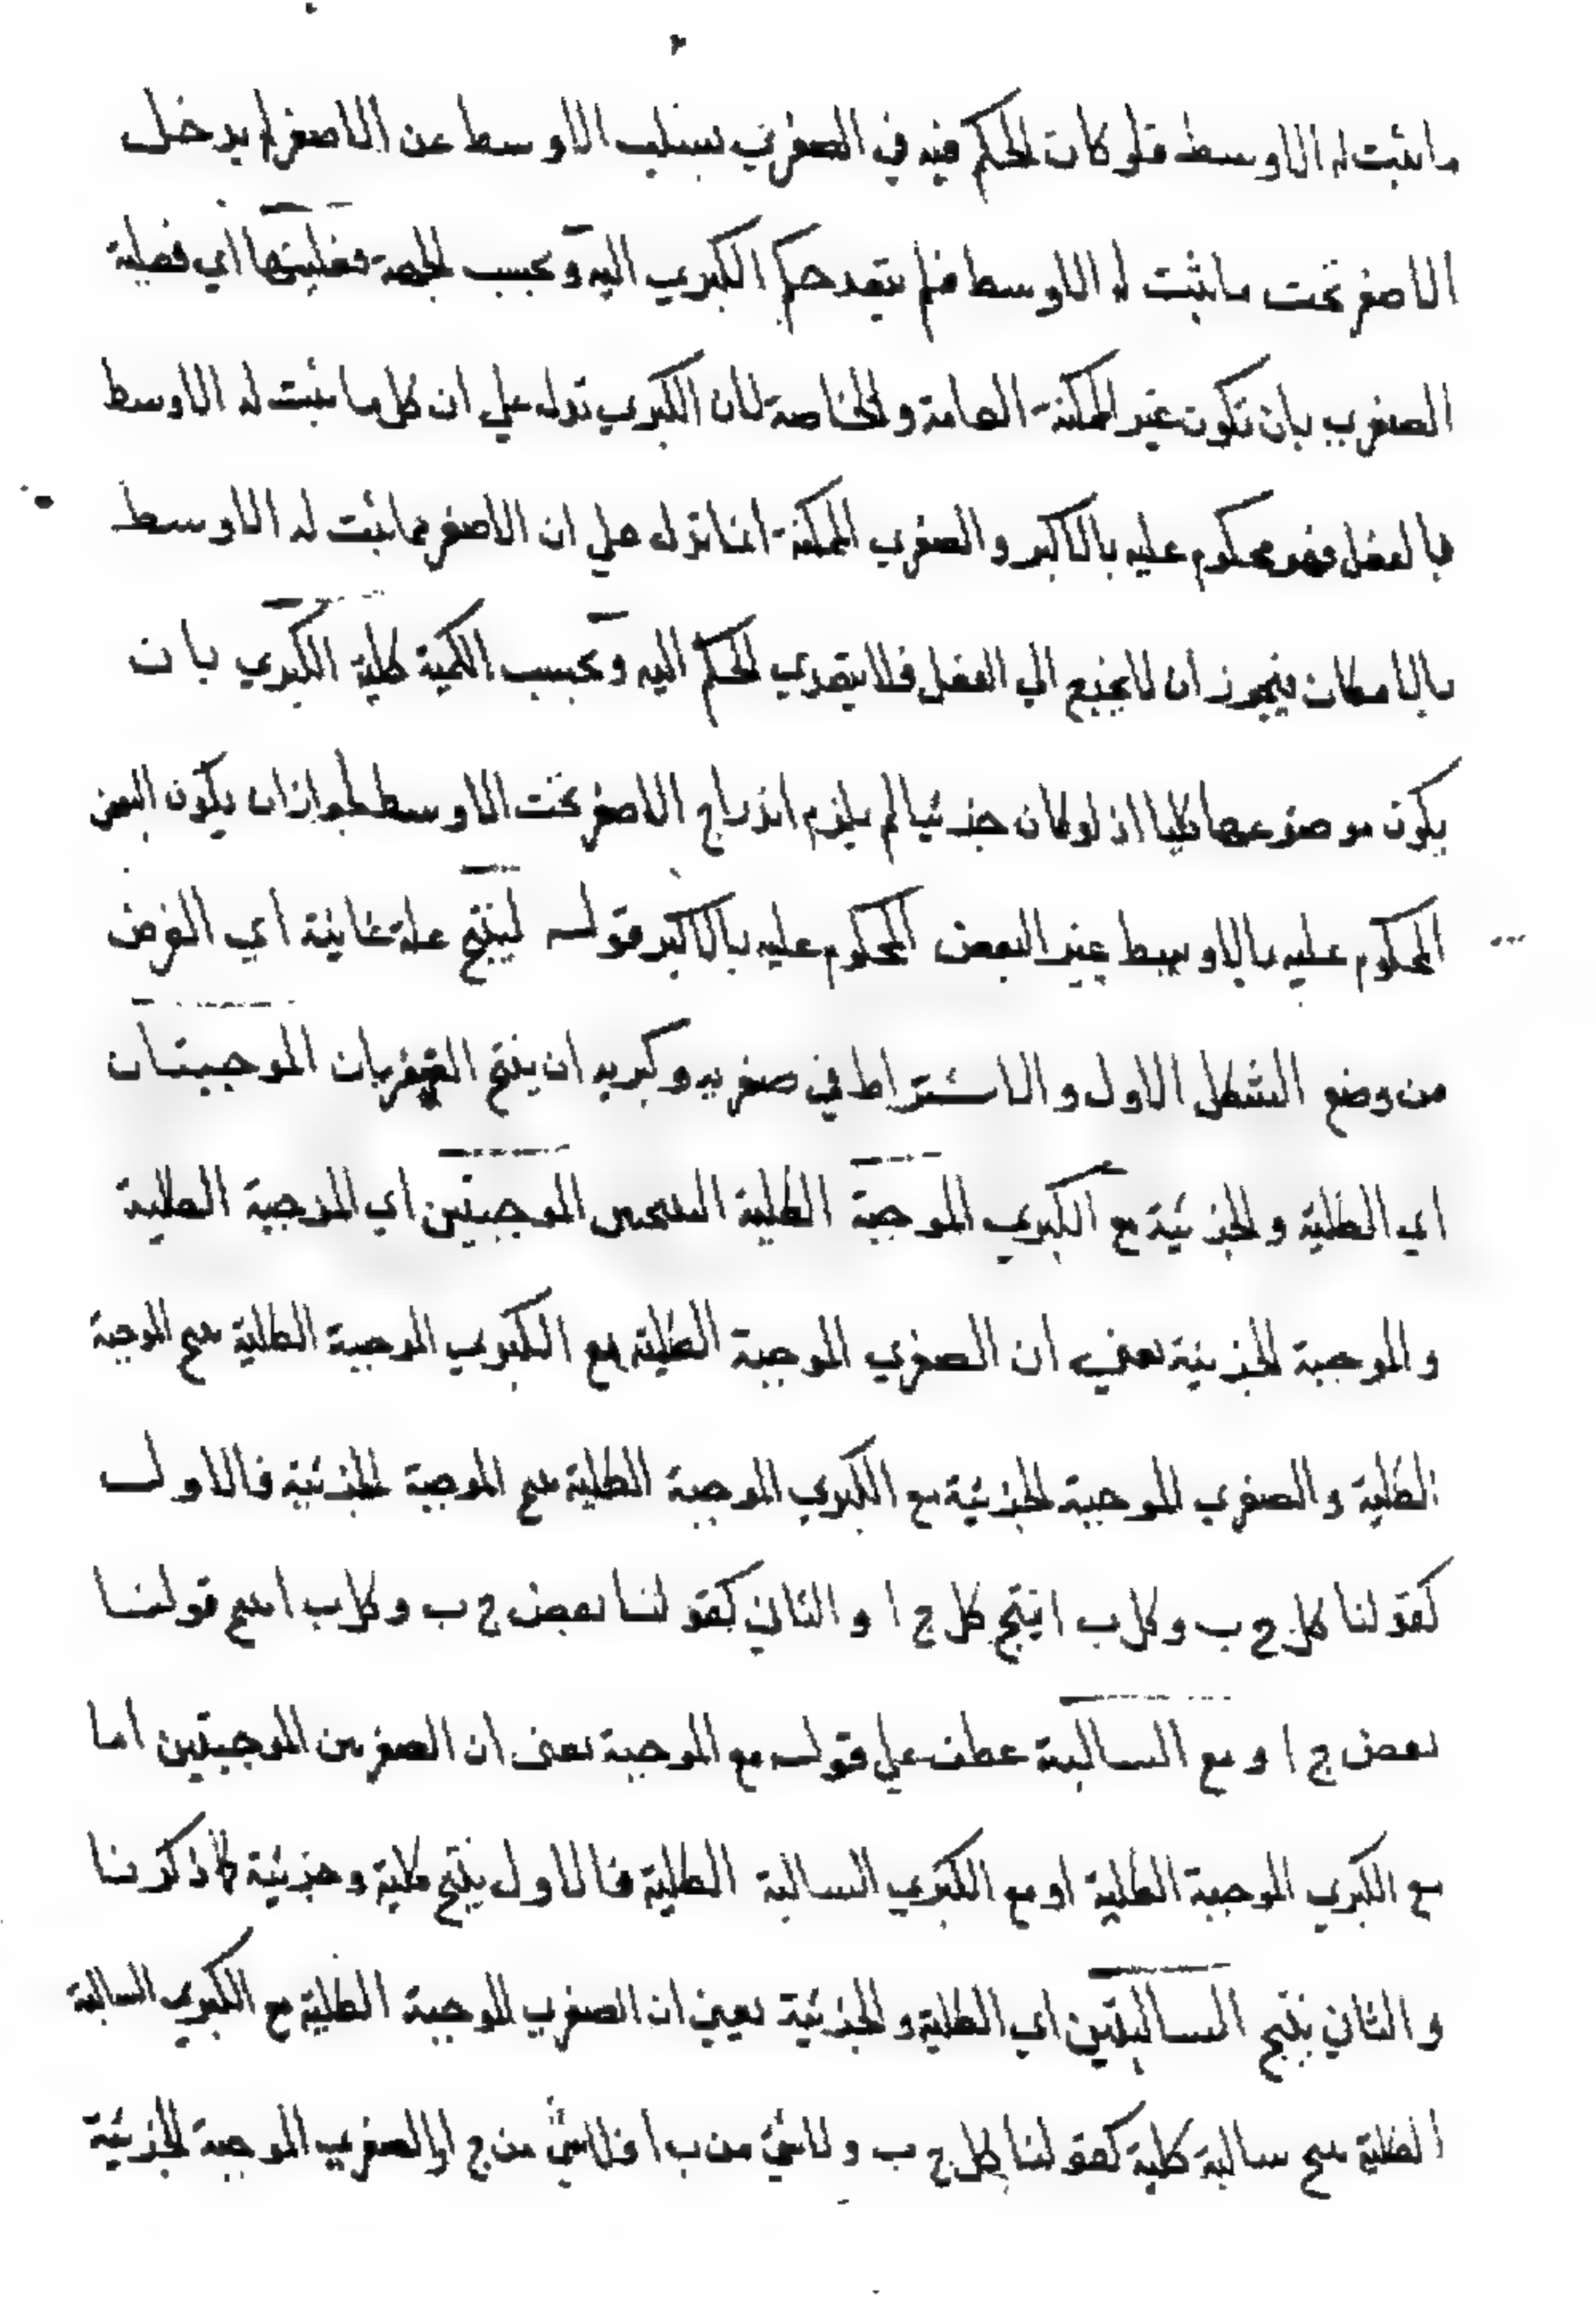 ما ثبت له الاوسط فلو كان الحكم فيه في الصغري بسلب الاوسط عن الاصغر لم يدخل
الاصغر تحت ما ثبت له الاوسط فلم يتعد حكم الكبري اليه و بحسب الجهة فعليتها اي فعلية
الصغري بان تكون غير الممكنة العامة والخاصة لان الكبري تدل علي ان كل ما ثبت له الاوسط
بالفعل فهو محكوم عليه بالاكبر والصغري الممكنة انما تدل علي ان الاصغر مما ثبت له الاوسط
بالامكان فيجوز ان لا يخرج الي الفعل فلا يتعدي الحكم اليه و بحسب الكمية كلية الكبري بان
يكون موضوعها كليا اذ لو كان جزئيا لم يلزم اندراج الاصغر تحت الاوسط لجواز ان يكون البعض
المحكوم عليه بالاوسط غير البعض المحكوم عليه بالاكبر قوله لينتج علة غائية اي الغرض
من وضع الشكل الاول والاشتراط في صغريه وكبريه ان ينتج الصغريان الموجبتان
اي الكلية والجزئية مع الكبري الموجبة الكلية الموجبتين اي الموجبة الكلية
والموجبة الجزئية يعني ان الصغري الموجبة الكلية مع الكبري الموجبة الكلية ينتج الموجبة
الكلية والصغري الموجبة الجزئية مع الكبري الموجبة الكلية ينتج الموجبة الجزئية فالاول
كقولنا كل ج ب وكل ب ا ينتج كل ج ا والثاني كقولنا بعض ج ب وكل ب ا ينتج قولنا
بعض ج ا و مع السالبة عطف علي قوله مع الموجبة يعني ان الصغريين الموجبتين اما
مع الكبري الموجبة الكلية او مع الكبري السالبة الكلية فالاول ينتج كلية وجزئية كما ذكرنا
والثاني ينتج السالبتين اي الكلية والجزئية يعني ان الصغري الموجبة الكلية مع الكبري السالبة
الكلية ينتج سالبة كلية كقولنا كل ج ب ولا شئ من ب ا فلا شئ من ج ا والصغري الموجبة الجزئية